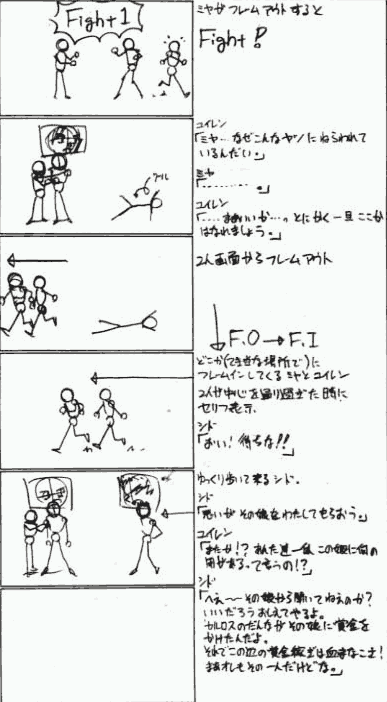 Fight 1
ミヤがフレームアウトすると
Fight!
ユイレン
「ミヤ…なぜこんなヤツにねらわれて
いるんだい。」
ミヤ
「………。」
ユイレン
「……まぁいいか…。とにかく一旦ここから
はなれましょう。」
2人画面からフレームアウト
F.O→F.I
どこか(てきとうな場所で)に
フレームインしてくるミヤとユイレン
2人が中心を通り過ぎた時に
セリフ表示.
シド
「おい!待ちな!!」
ゆっくり歩いて来るシド.
シド
「悪いがその娘をわたしてもらおう。」
ユイレン
「またか!?あんた達一体この娘に何の
用があるって言うの!?」
シド
「へぇ〜その娘から聞いてねえのか?
いいだろうおしえてやるよ。
カルロスのだんながその娘に賞金を
かけたんだよ。
それでこの辺の賞金稼ぎは血まなこさ!
まあオレもその一人だけどな。」